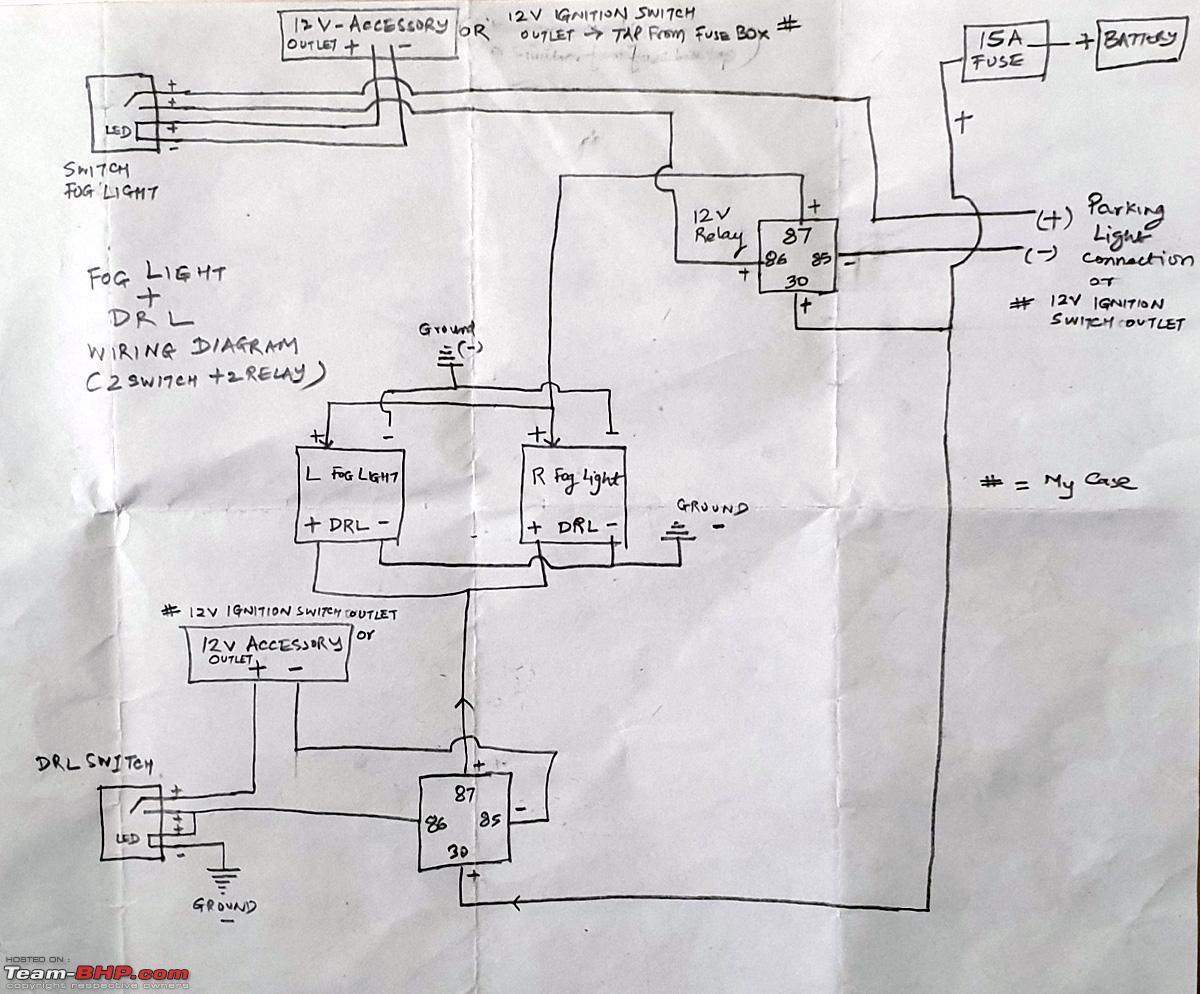 12V-ACCESSORY
OUTLET + -
OR
12V IGNITION SWITCH
OUTLET → TAP FROM FUSE BOX #
15A
FUSE
+
BATTERY
+
+
+
+
LED
-
SWITCH
FOG LIGHT
+
12V
Relay
87
86 85
30
+
-
+
(+) Parking
Light
(-) connection
or
# 12V IGNITION
SWITCH OUTLET
FOG LIGHT
+
DRL
WIRING DIAGRAM
(2 SWITCH + 2 RELAY)
Ground
(-)
+ -
L FOG LIGHT
+ DRL -
+
R Fog Light
+ DRL -
GROUND
-
# = My Case
# 12V IGNITION SWITCH OUTLET
or
12V ACCESSORY
OUTLET + -
DRL SWITCH
+
+
+
LED
-
GROUND
-
+
87
86 85
30
-
+
HOSTED ON :
Team-BHP.com
copyright respective owners